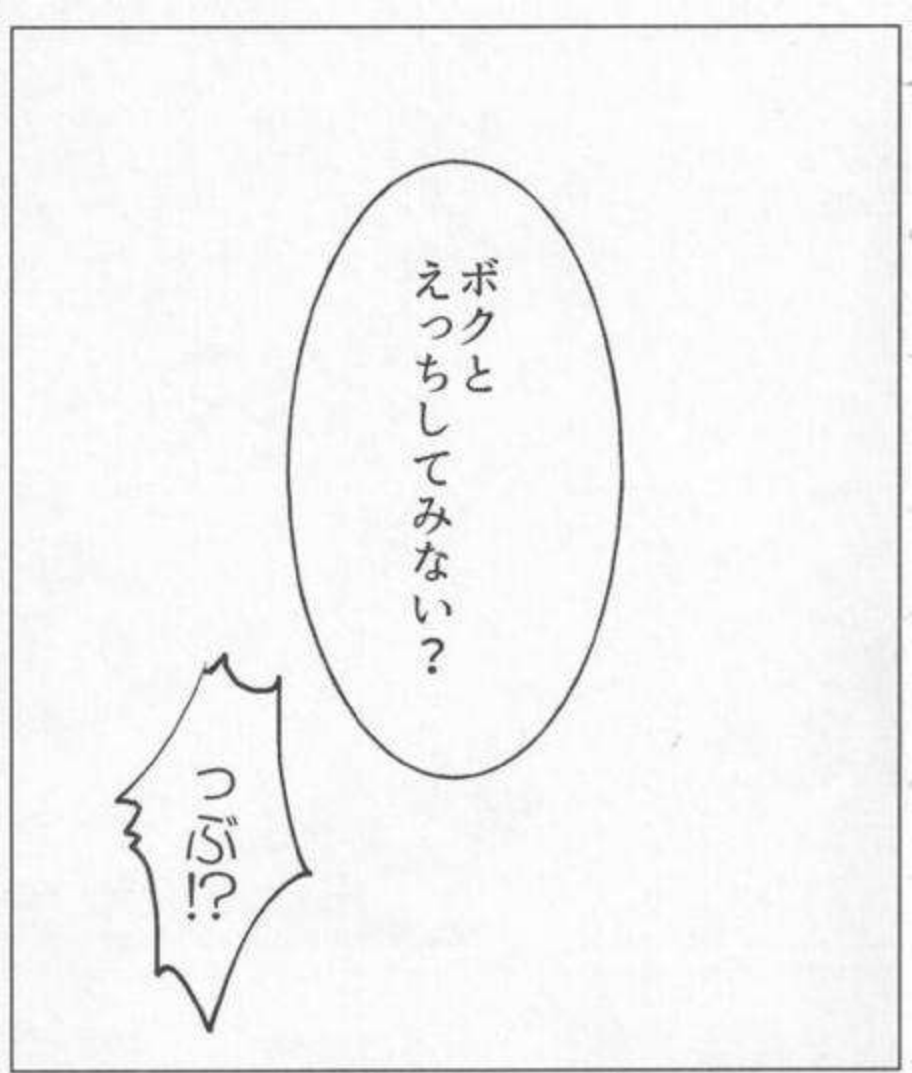 ボクと
えっちしてみない?
つぶ!?